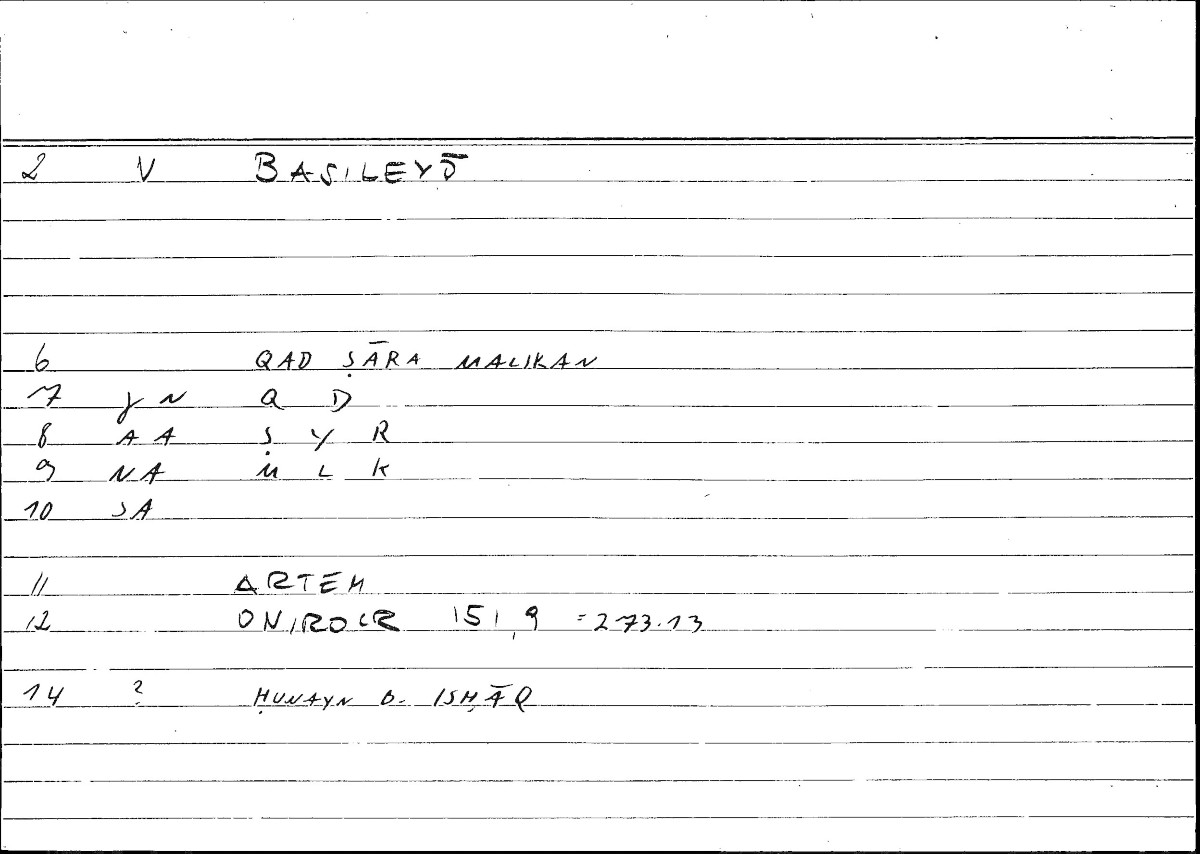 2 V BASILEYŌ
6 QAD ṢĀRA MALIKAN
7 γN Q D
8 AA Ṣ Y R
9 NA M L K
10 SA
11 ARTEM
12 ONIROCR 151,9 =273.13
14 ? ḤUNAYN B. ISḤĀQ